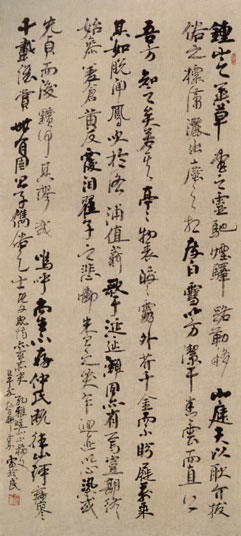 鍾山之英草堂之靈馳煙驛路勒移山庭夫以耿介拔
俗之標瀟灑出塵之想度白雪以方潔干青雲而直上
吾方知之矣若其亭亭物表皎皎霞外芥千金而不眄屣萬乘
其如脫聞鳳吹於洛浦值薪歌於延瀨固亦有焉豈期終
始參差蒼黃反覆淚翟子之悲慟朱公之哭乍迴迹以心染或
先貞而後黷何其謬哉嗚呼尚生不存仲氏既往山阿寂寥
千載誰賞世有周子雋俗之士既文既博亦玄亦史孔稚珪北山移文